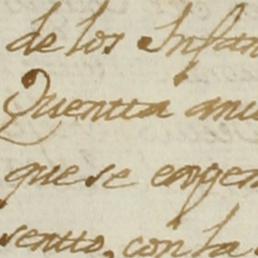 de los Infan
Quentta anu
que se
sentto, con la